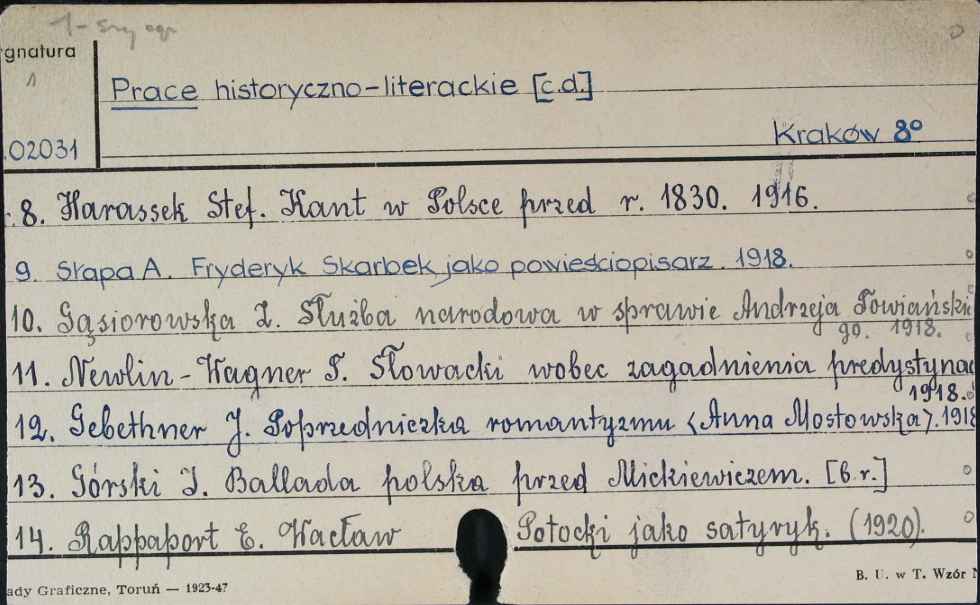 gnatura
Prace historyczno-literackie [c.d.]
02031
Kraków 8°
8. Harassek Stef. Kant w Polsce przed r. 1830. 1916.
9. Słapa A. Fryderyk Skarbek jako powieściopisarz. 1918.
10. Gąsiorowska Z. Służba narodowa w sprawie Andrzeja Towiański
go. 1918.
11. Newlin-Wagner T. Słowacki wobec zagadnienia predystynac
1918.
12. Gebethner J. Poprzedniczka romantyzmu <Anna Mostowska>. 1918
13. Górski J. Ballada polska przed Mickiewiczem. [b.r.]
14. Rappaport E. Wacław Potocki jako satyryk. (1920).
ady Graficzne, Toruń — 1923-47
B. U. w T. Wzór